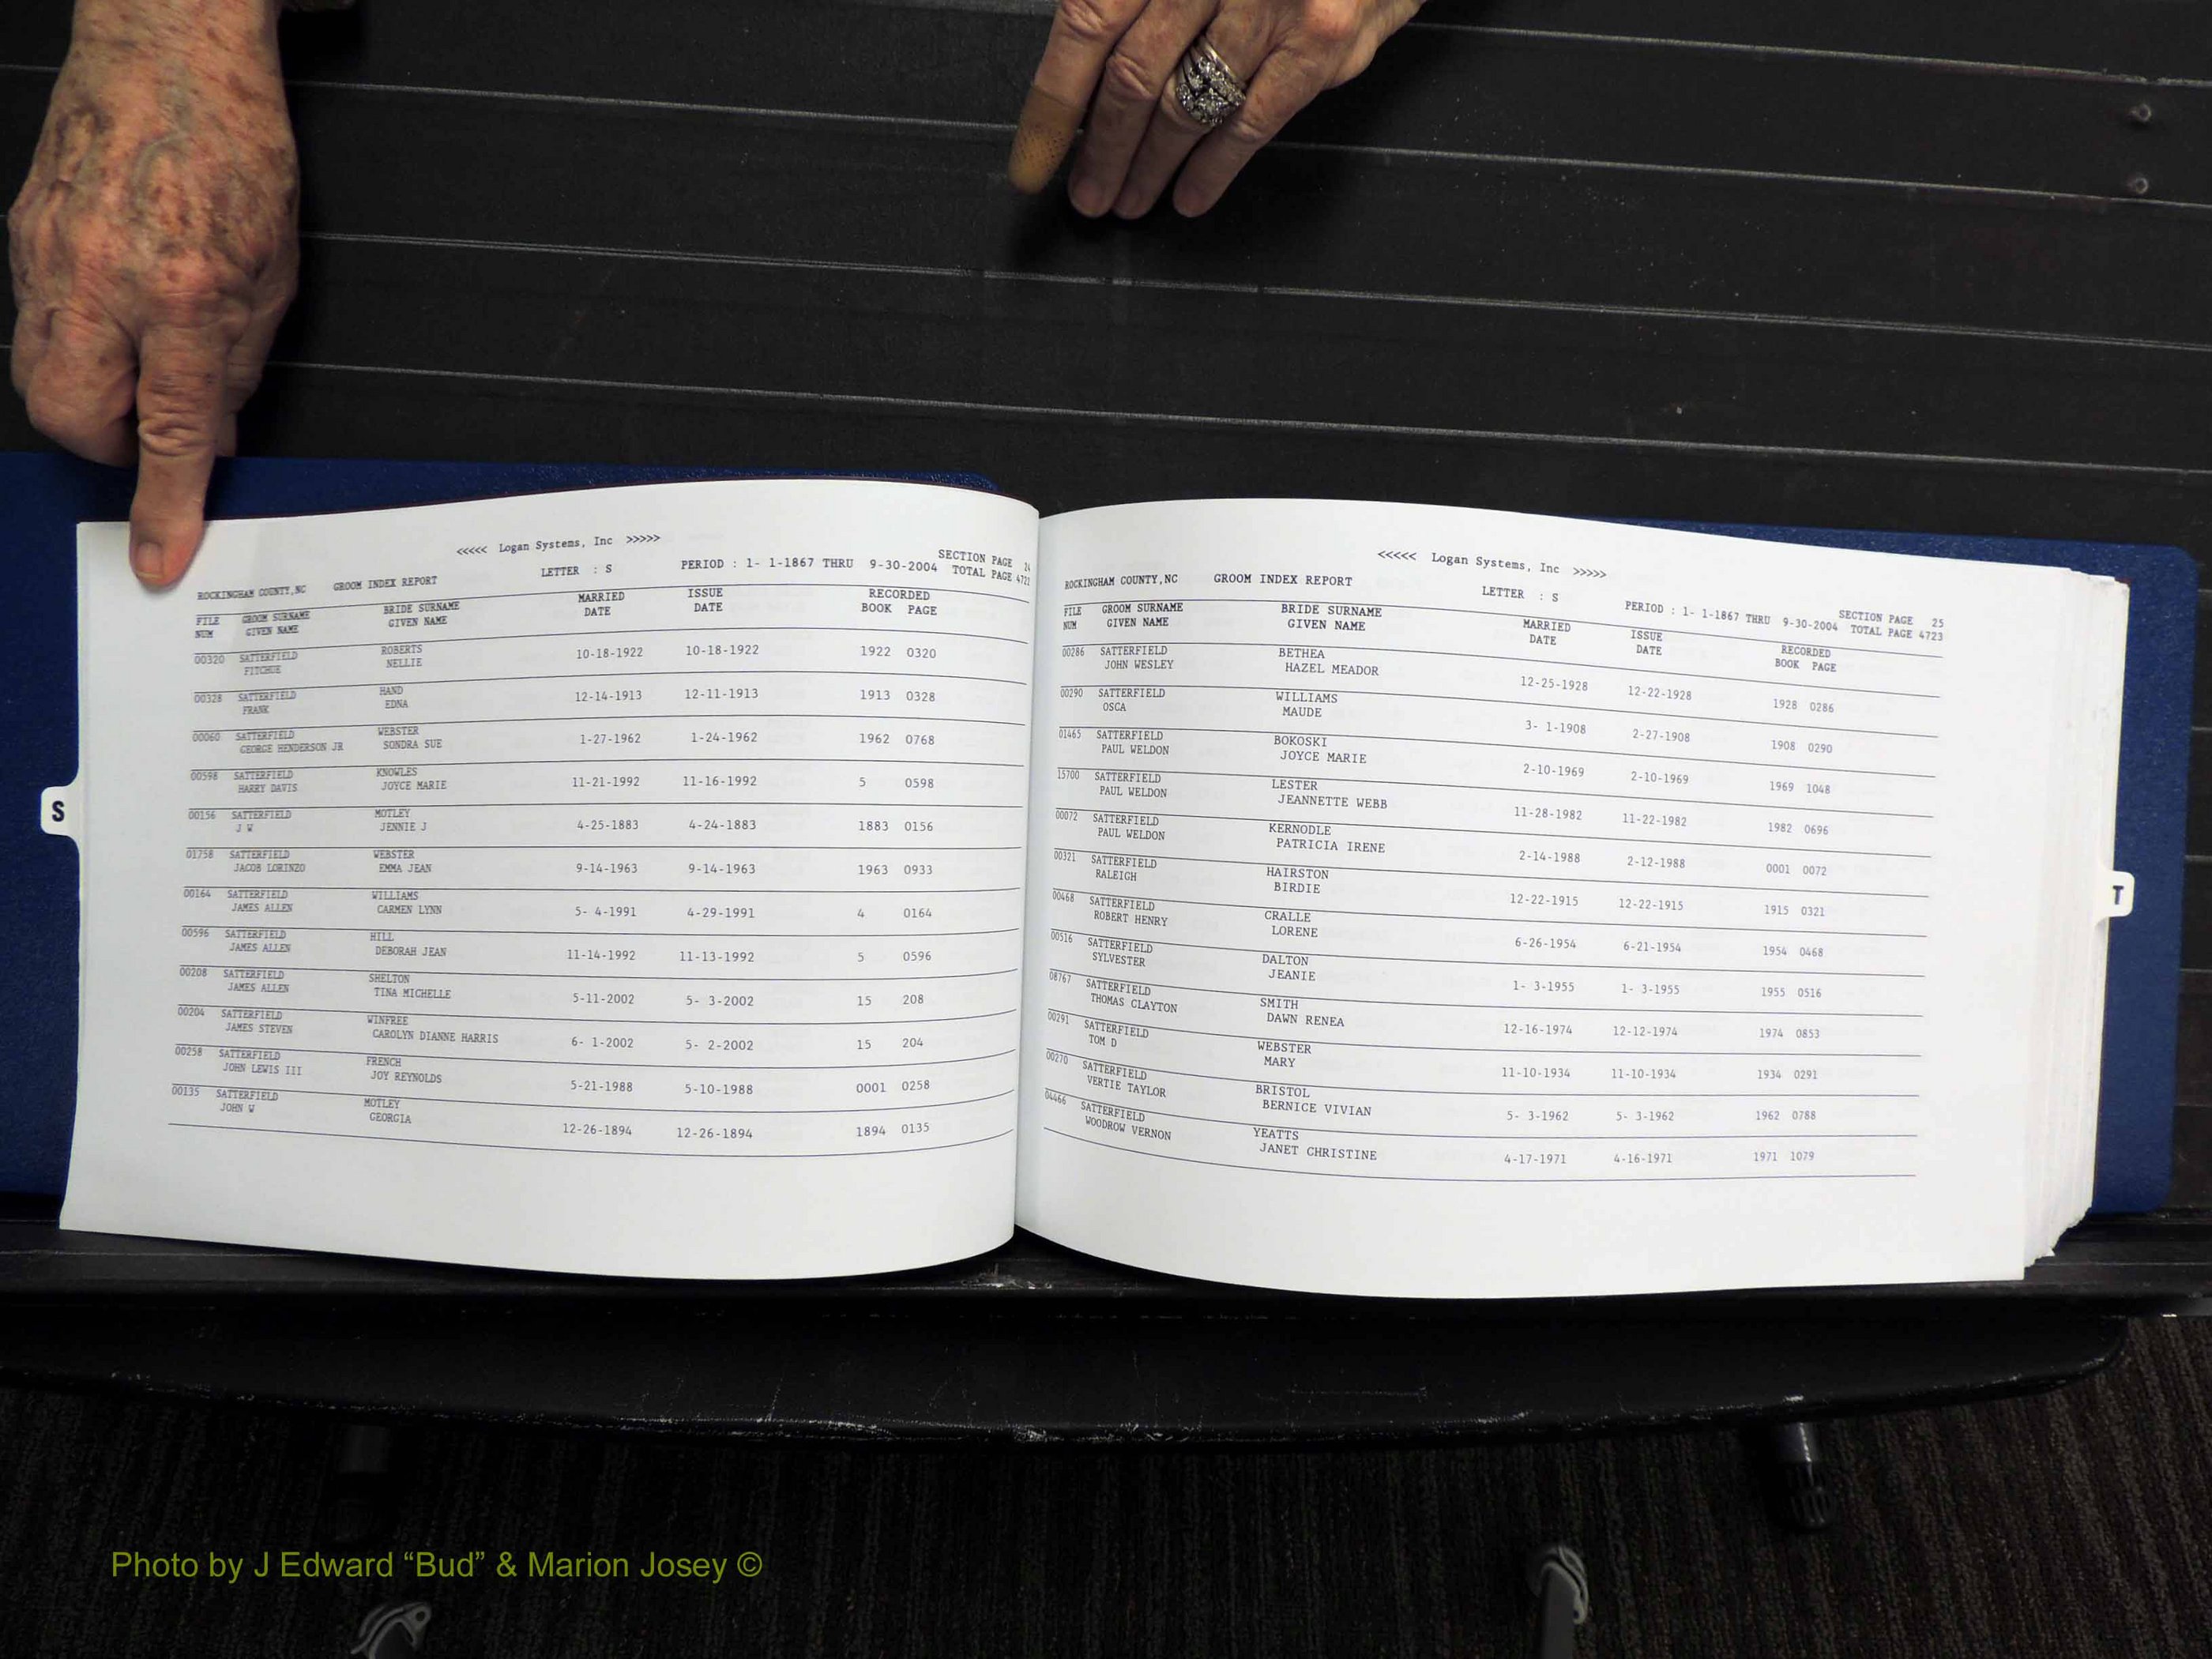 <<<<< Logan Systems, Inc >>>>>
ROCKINGHAM COUNTY,NC GROOM INDEX REPORT LETTER : S PERIOD : 1- 1-1867 THRU 9-30-2004 SECTION PAGE 24
TOTAL PAGE 4722
FILE GROOM SURNAME BRIDE SURNAME MARRIED ISSUE RECORDED
NUM GIVEN NAME GIVEN NAME DATE DATE BOOK PAGE
00320 SATTERFIELD ROBERTS 10-18-1922 10-18-1922 1922 0320
FITCHUE NELLIE
00328 SATTERFIELD HAND 12-14-1913 12-11-1913 1913 0328
FRANK EDNA
00060 SATTERFIELD WEBSTER 1-27-1962 1-24-1962 1962 0768
GEORGE HENDERSON JR SONDRA SUE
00598 SATTERFIELD KNOWLES 11-21-1992 11-16-1992 5 0598
HARRY DAVIS JOYCE MARIE
00156 SATTERFIELD MOTLEY 4-25-1883 4-24-1883 1883 0156
J W JENNIE J
01758 SATTERFIELD WEBSTER 9-14-1963 9-14-1963 1963 0933
JACOB LORINZO EMMA JEAN
00164 SATTERFIELD WILLIAMS 5- 4-1991 4-29-1991 4 0164
JAMES ALLEN CARMEN LYNN
00596 SATTERFIELD HILL 11-14-1992 11-13-1992 5 0596
JAMES ALLEN DEBORAH JEAN
00208 SATTERFIELD SHELTON 5-11-2002 5- 3-2002 15 208
JAMES ALLEN TINA MICHELLE
00204 SATTERFIELD WINFREE 6- 1-2002 5- 2-2002 15 204
JAMES STEVEN CAROLYN DIANNE HARRIS
00258 SATTERFIELD FRENCH 5-21-1988 5-10-1988 0001 0258
JOHN LEWIS III JOY REYNOLDS
00135 SATTERFIELD MOTLEY 12-26-1894 12-26-1894 1894 0135
JOHN W GEORGIA
S
<<<<< Logan Systems, Inc >>>>>
ROCKINGHAM COUNTY,NC GROOM INDEX REPORT LETTER : S PERIOD : 1- 1-1867 THRU 9-30-2004 SECTION PAGE 25
TOTAL PAGE 4723
FILE GROOM SURNAME BRIDE SURNAME MARRIED ISSUE RECORDED
NUM GIVEN NAME GIVEN NAME DATE DATE BOOK PAGE
00286 SATTERFIELD BETHEA 12-25-1928 12-22-1928 1928 0286
JOHN WESLEY HAZEL MEADOR
00290 SATTERFIELD WILLIAMS 3- 1-1908 2-27-1908 1908 0290
OSCA MAUDE
01465 SATTERFIELD BOKOSKI 2-10-1969 2-10-1969 1969 1048
PAUL WELDON JOYCE MARIE
15700 SATTERFIELD LESTER 11-28-1982 11-22-1982 1982 0696
PAUL WELDON JEANNETTE WEBB
00072 SATTERFIELD KERNODLE 2-14-1988 2-12-1988 0001 0072
PAUL WELDON PATRICIA IRENE
00321 SATTERFIELD HAIRSTON 12-22-1915 12-22-1915 1915 0321
RALEIGH BIRDIE
00468 SATTERFIELD CRALLE 6-26-1954 6-21-1954 1954 0468
ROBERT HENRY LORENE
00516 SATTERFIELD DALTON 1- 3-1955 1- 3-1955 1955 0516
SYLVESTER JEANIE
08767 SATTERFIELD SMITH 12-16-1974 12-12-1974 1974 0853
THOMAS CLAYTON DAWN RENEA
00291 SATTERFIELD WEBSTER 11-10-1934 11-10-1934 1934 0291
TOM D MARY
00270 SATTERFIELD BRISTOL 5- 3-1962 5- 3-1962 1962 0788
VERTIE TAYLOR BERNICE VIVIAN
04466 SATTERFIELD YEATTS 4-17-1971 4-16-1971 1971 1079
WOODROW VERNON JANET CHRISTINE
T
Photo by J Edward “Bud” & Marion Josey ©